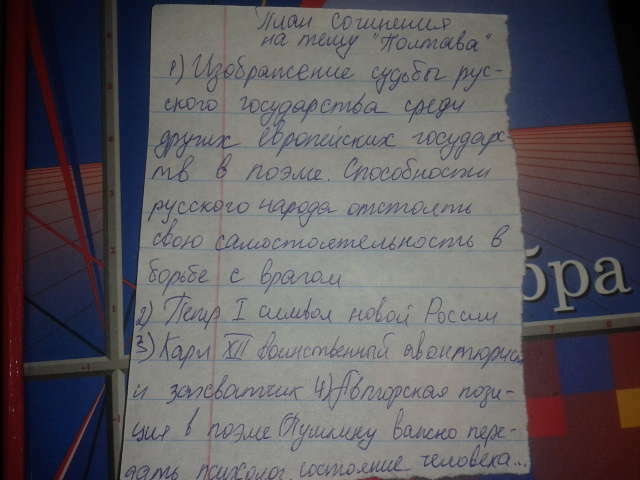 План сочинения
на тему "Полтава"
1) Изображение судьбы рус-
ского государства среди
других европейских государс-
тв в поэме. Способности
русского народа отстоять
свою самостоятельность в
борьбе с врагом
2) Петр I символ новой России
3) Карл XII воинственный авантюрист
и захватчик 4) Авторская пози-
ция в поэме (Пушкину важно пере-
дать психолог. состояние человека...
бра